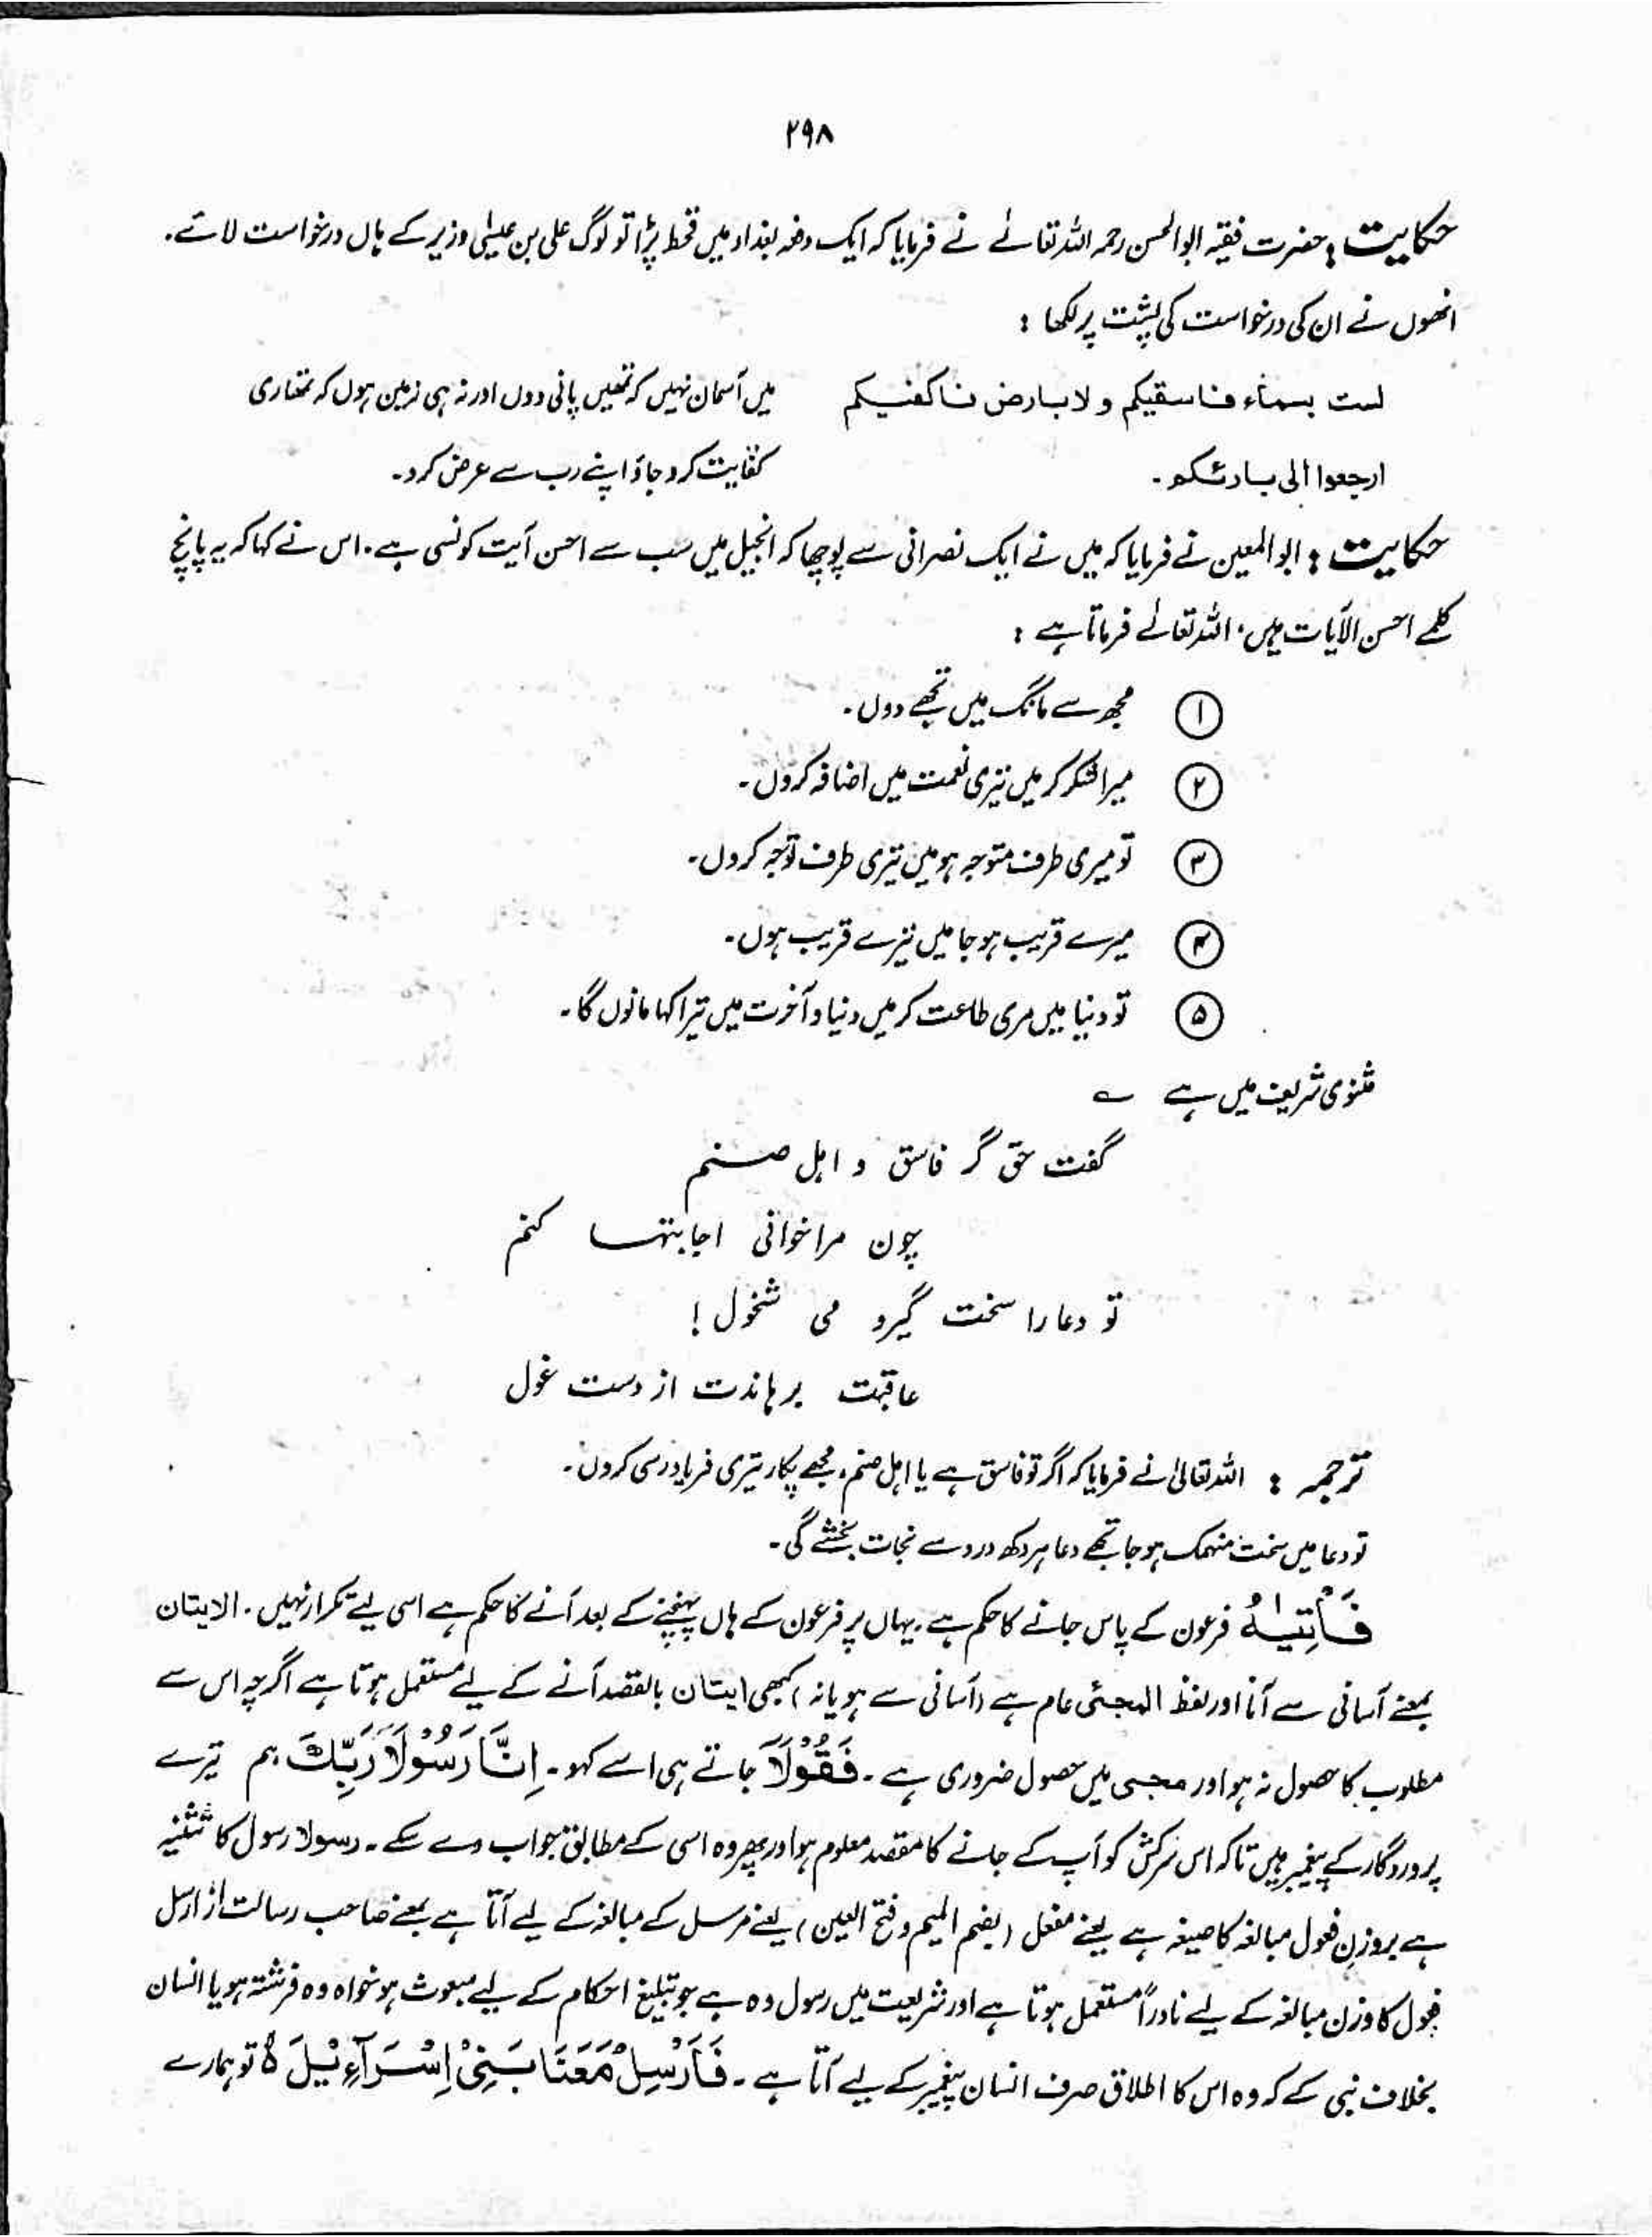 ۲۹۸
حکایت : حضرت فقیہ ابوالحسن رحمہ اللہ تعالےٰ نے فرمایا کہ ایک دفعہ بغداد میں قحط پڑا تو لوگ علی بن عیسٰی وزیر کے ہاں درخواست لائے۔
انھوں نے ان کی درخواست کی پشت پر لکھا :
لست بسماء فاسقیکم ولا بارض فاکفیکم میں آسمان نہیں کہ تمھیں پانی دوں اور نہ ہی زمین ہوں کہ تمھاری
ارجعوا الی بارئکم ۔ کفایت کرو جاؤ اپنے رب سے عرض کرو۔
حکایت : ابوالمعین نے فرمایا کہ میں نے ایک نصرانی سے پوچھا کہ انجیل میں سب سے احسن آیت کونسی ہے۔ اس نے کہا کہ یہ پانچ
کلمے احسن الآیات ہیں، اللہ تعالےٰ فرماتا ہے :
① مجھ سے مانگ میں تجھے دوں۔
② میرا شکر کر میں تیری نعمت میں اضافہ کروں۔
③ تو میری طرف متوجہ ہو میں تیری طرف توجہ کروں۔
④ میرے قریب ہو جا میں تیرے قریب ہوں۔
⑤ تو دنیا میں مری طاعت کر میں دنیا و آخرت میں تیرا کہا مانوں گا۔
مثنوی شریف میں ہے ؎
گفت حق گر فاسق و اہل صنم
چون مرا خوانی اجابتہا کنم
تو دعا را سخت گیرو می شخول !
عاقبت برہاندت از دست غول
ترجمہ : اللہ تعالیٰ نے فرمایا کہ اگر تو فاسق ہے یا اہل صنم، مجھے پکار تیری فریاد رسی کروں۔
تو دعا میں سخت منہمک ہو جا تجھے دعا ہر دکھ درد سے نجات بخشے گی۔
فَاْتِیٰهُ فرعون کے پاس جانے کا حکم ہے۔ یہاں پر فرعون کے ہاں پہنچنے کے بعد آنے کا حکم ہے اسی لیے تکرار نہیں۔ الایتان
بمعنے آسانی سے آنا اور لفظ المجئی عام ہے (آسانی سے ہو یا نہ) کبھی ایتان بالقصد آنے کے لیے مستعمل ہوتا ہے اگرچہ اس سے
مطلوب کا حصول نہ ہو اور مجی میں حصول ضروری ہے ۔ فَقُوْلَاۤ جاتے ہی اسے کہو ۔ اِنَّا رَسُوْلَا رَبِّكَ ہم تیرے
پروردگار کے پیغمبر ہیں تاکہ اس سرکش کو آپ کے جانے کا مقصد معلوم ہو اور پھر وہ اسی کے مطابق جواب دے سکے ۔ رسولا رسول کا تثنیہ
ہے بروزن فعول مبالغہ کا صیغہ ہے یعنے مفعل (بضم المیم وفتح العین) یعنے مرسل کے مبالغہ کے لیے آتا ہے بمعنے صاحب رسالت از ارسل
فعول کا وزن مبالغہ کے لیے نادراً مستعمل ہوتا ہے اور شریعت میں رسول وہ ہے جو تبلیغ احکام کے لیے مبعوث ہو خواہ وہ فرشتہ ہو یا انسان
بخلاف نبی کے کہ وہ اس کا اطلاق صرف انسان پیغمبر کے لیے آتا ہے ۔ فَاَرْسِلْ مَعَنَا بَنِیْۤ اِسْرَآءِیْلَ ۵ تو ہمارے